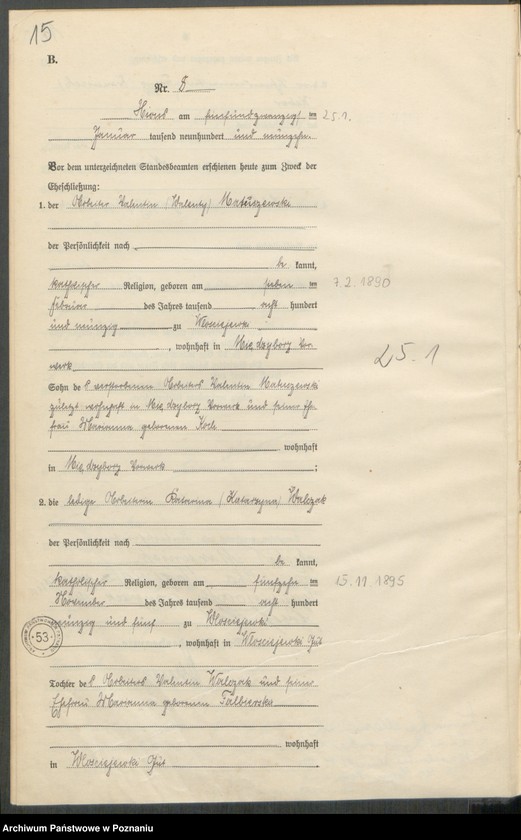 15
B.
Nr. 8
am fünfundzwanzigsten 25.1.
Januar tausend neunhundert und neunzehn.
Vor dem unterzeichneten Standesbeamten erschienen heute zum Zweck der
Eheschließung:
1. der Arbeiter Valentin (Walenty) Matuszewski
der Persönlichkeit nach
be kannt,
katholischer Religion, geboren am sieben ten 7.2.1890
Februar des Jahres tausend acht hundert
und neunzig zu Wlosciejewki
, wohnhaft in Miedzyborz Vor-
werk
Sohn des verstorbenen Arbeiters Valentin Matuszewski 25.1
zuletzt wohnhaft in Miedzyborz Vorwerk und seiner Ehe-
frau Marianna geborenen Koch
wohnhaft
in Miedzyborz Vorwerk ;
2. die ledige Arbeiterin Katarina (Katarzyna) Walczak
der Persönlichkeit nach
be kannt,
katholischer Religion, geboren am fünfzehn ten 15.11 1895
November des Jahres tausend acht hundert
neunzig und fünf zu Wlosciejewki
53
, wohnhaft in Wlosciejewki Gut
Tochter des Arbeiters Valentin Walczak und seiner
Ehefrau Marianna geborenen
wohnhaft
in Wlosciejewki Gut
Archiwum Państwowe w Poznaniu